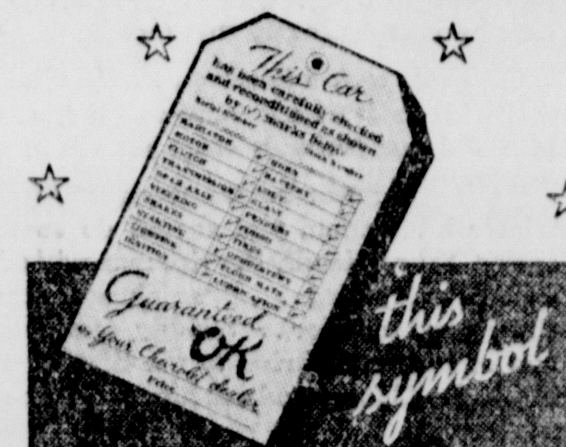 This Car
has been carefully checked
and reconditioned as shown
by (✓) marks below
Serial Number Stock Number
RADIATOR HORN
MOTOR BATTERY
CLUTCH
TRANSMISSION GLASS
REAR AXLE FENDERS
STEERING
BRAKES TIRES
STARTING UPHOLSTERY
LIGHTING FLOOR MATS
IGNITION LUBRICATION
Guaranteed
OK
by Your Chevrolet dealer
this
symbol